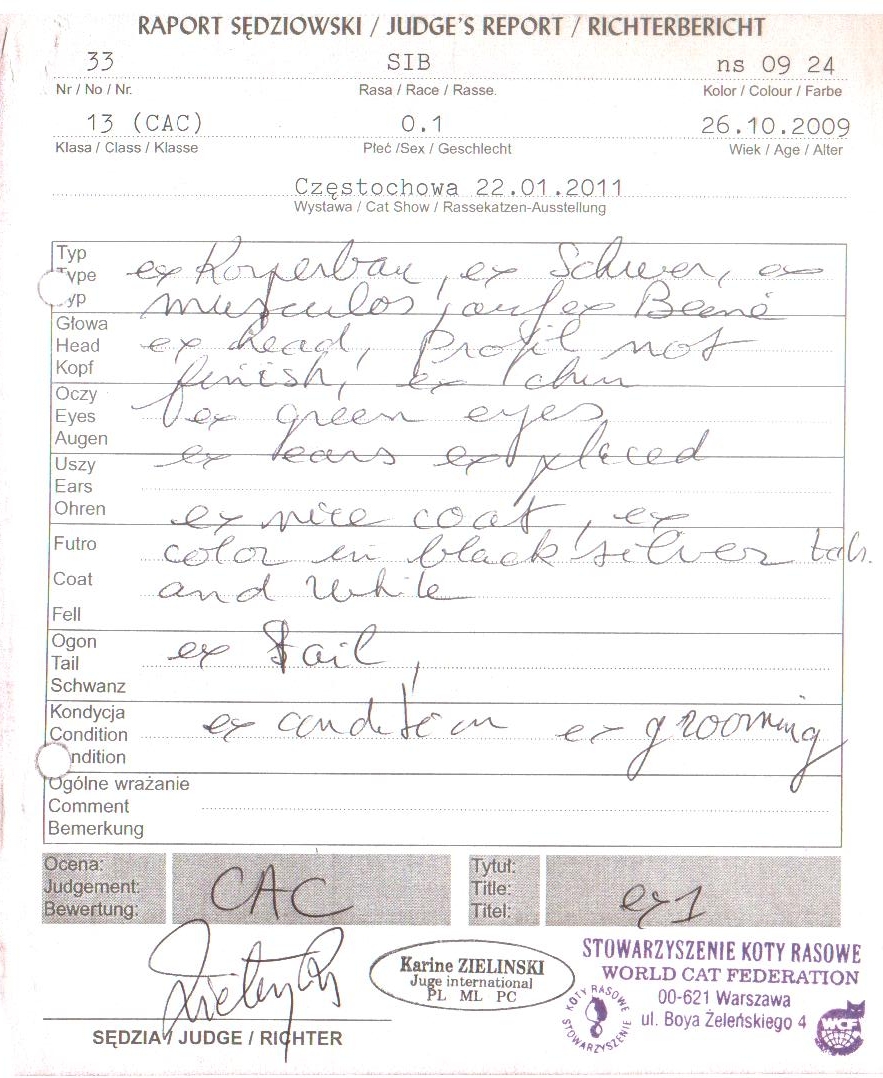 RAPORT SĘDZIOWSKI / JUDGE'S REPORT / RICHTERBERICHT
33 SIB ns 09 24
Nr / No / Nr. Rasa / Race / Rasse. Kolor / Colour / Farbe
13 (CAC) 0.1 26.10.2009
Klasa / Class / Klasse Płeć /Sex / Geschlecht Wiek / Age / Alter
Częstochowa 22.01.2011
Wystawa / Cat Show / Rassekatzen-Ausstellung
Typ
Type ex Korperbau, ex Schwer, ex
yp musculos, auf ex Beené
Głowa
Head ex head, Profil not
Kopf finish, ex chin
Oczy
Eyes ex green eyes
Augen
Uszy ex ears ex placed
Ears
Ohren ex nice coat, ex
Futro color in black silver tab.
Coat and White
Fell
Ogon ex tail,
Tail
Schwanz
Kondycja
Condition ex condition ex grooming
ndition
Ogólne wrażanie
Comment
Bemerkung
Ocena: Tytuł:
Judgement: CAC Title: ex1
Bewertung: Titel:
Karine ZIELINSKI
Juge international
PL ML PC
STOWARZYSZENIE KOTY RASOWE
WORLD CAT FEDERATION
00-621 Warszawa
ul. Boya Żeleńskiego 4
KOTY RASOWE
STOWARZYSZENIE
WCF
SĘDZIA / JUDGE / RICHTER